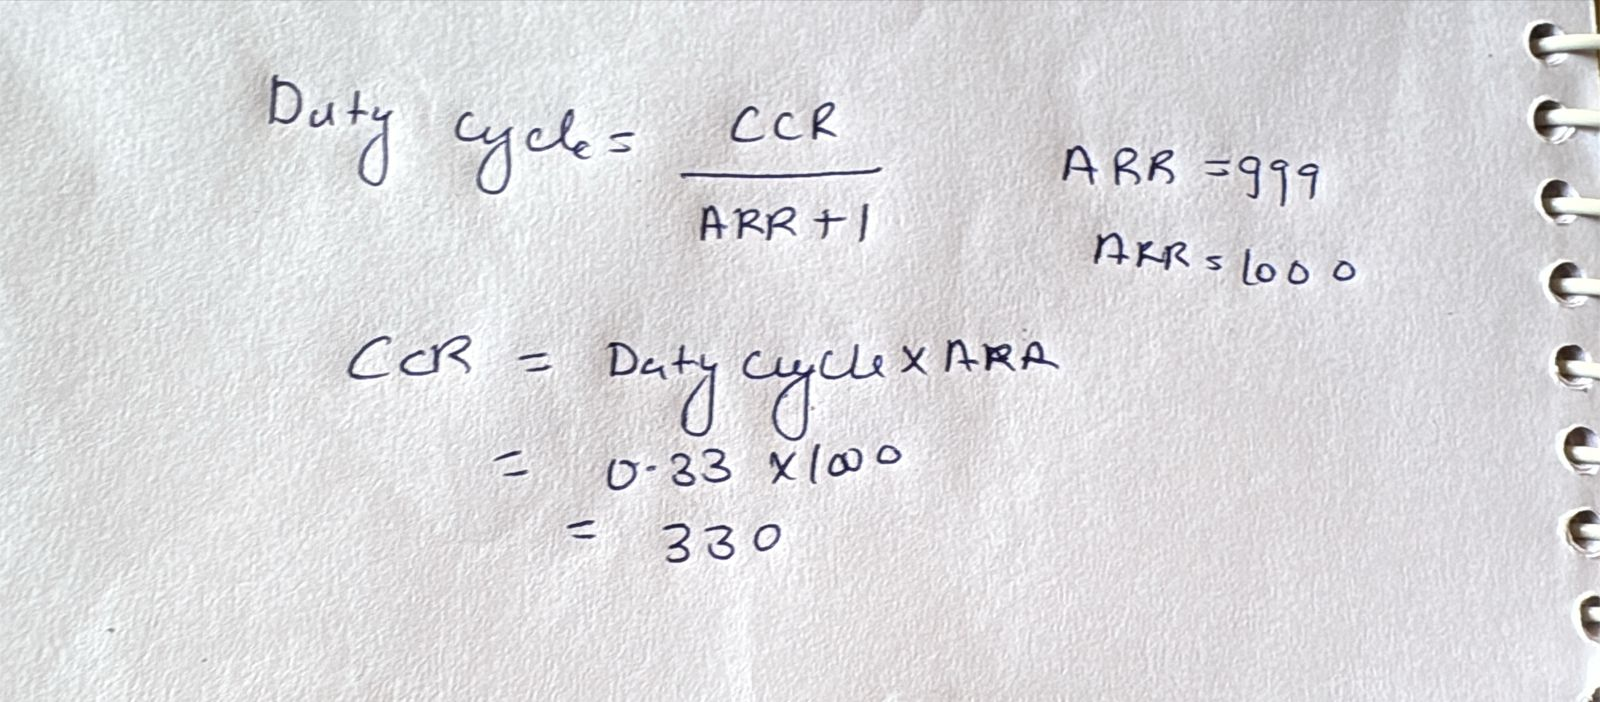 Duty cycle = CCR / ARR + 1
ARR = 999
ARR = 1000
CCR = Duty cycle x ARR
= 0.33 x 1000
= 330